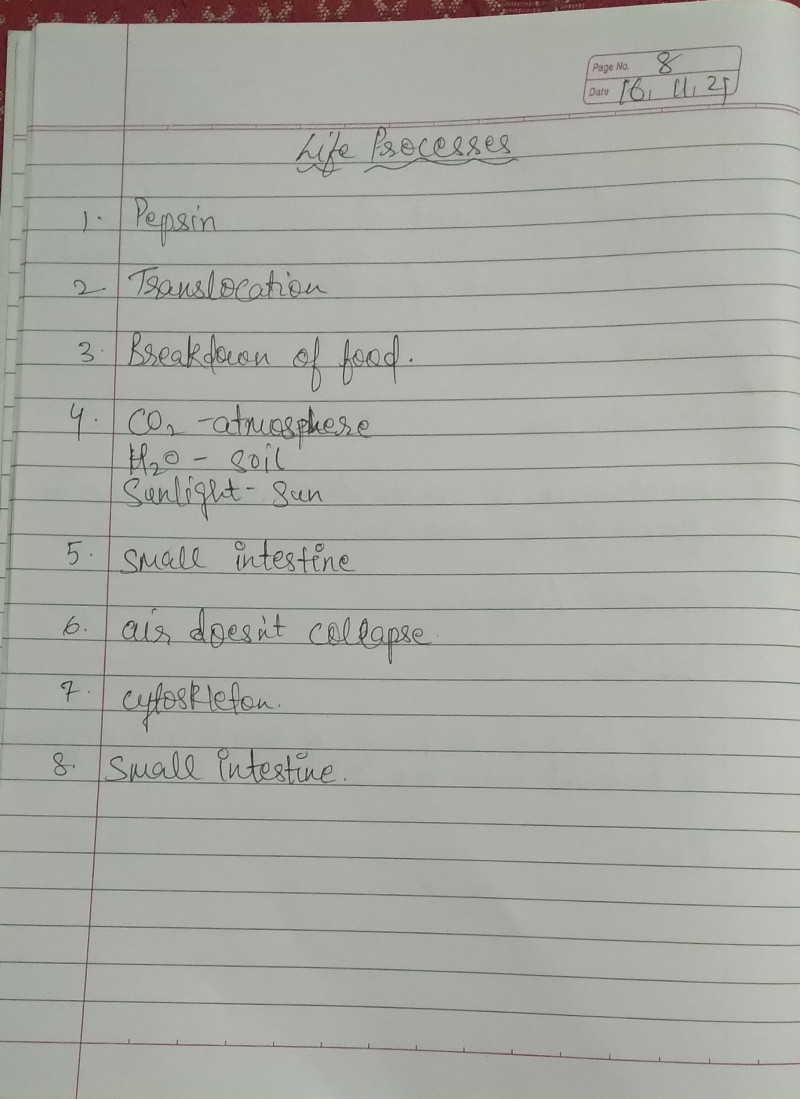 Page No. 8
Date 16, 11, 21
Life Processes
1. Pepsin
2 Translocation
3. Breakdown of food.
4. CO₂ - atmosphere
H₂O - soil
Sunlight - Sun
5. Small intestine
6. air doesn't collapse.
7. cytoskleton.
8. Small intestine.